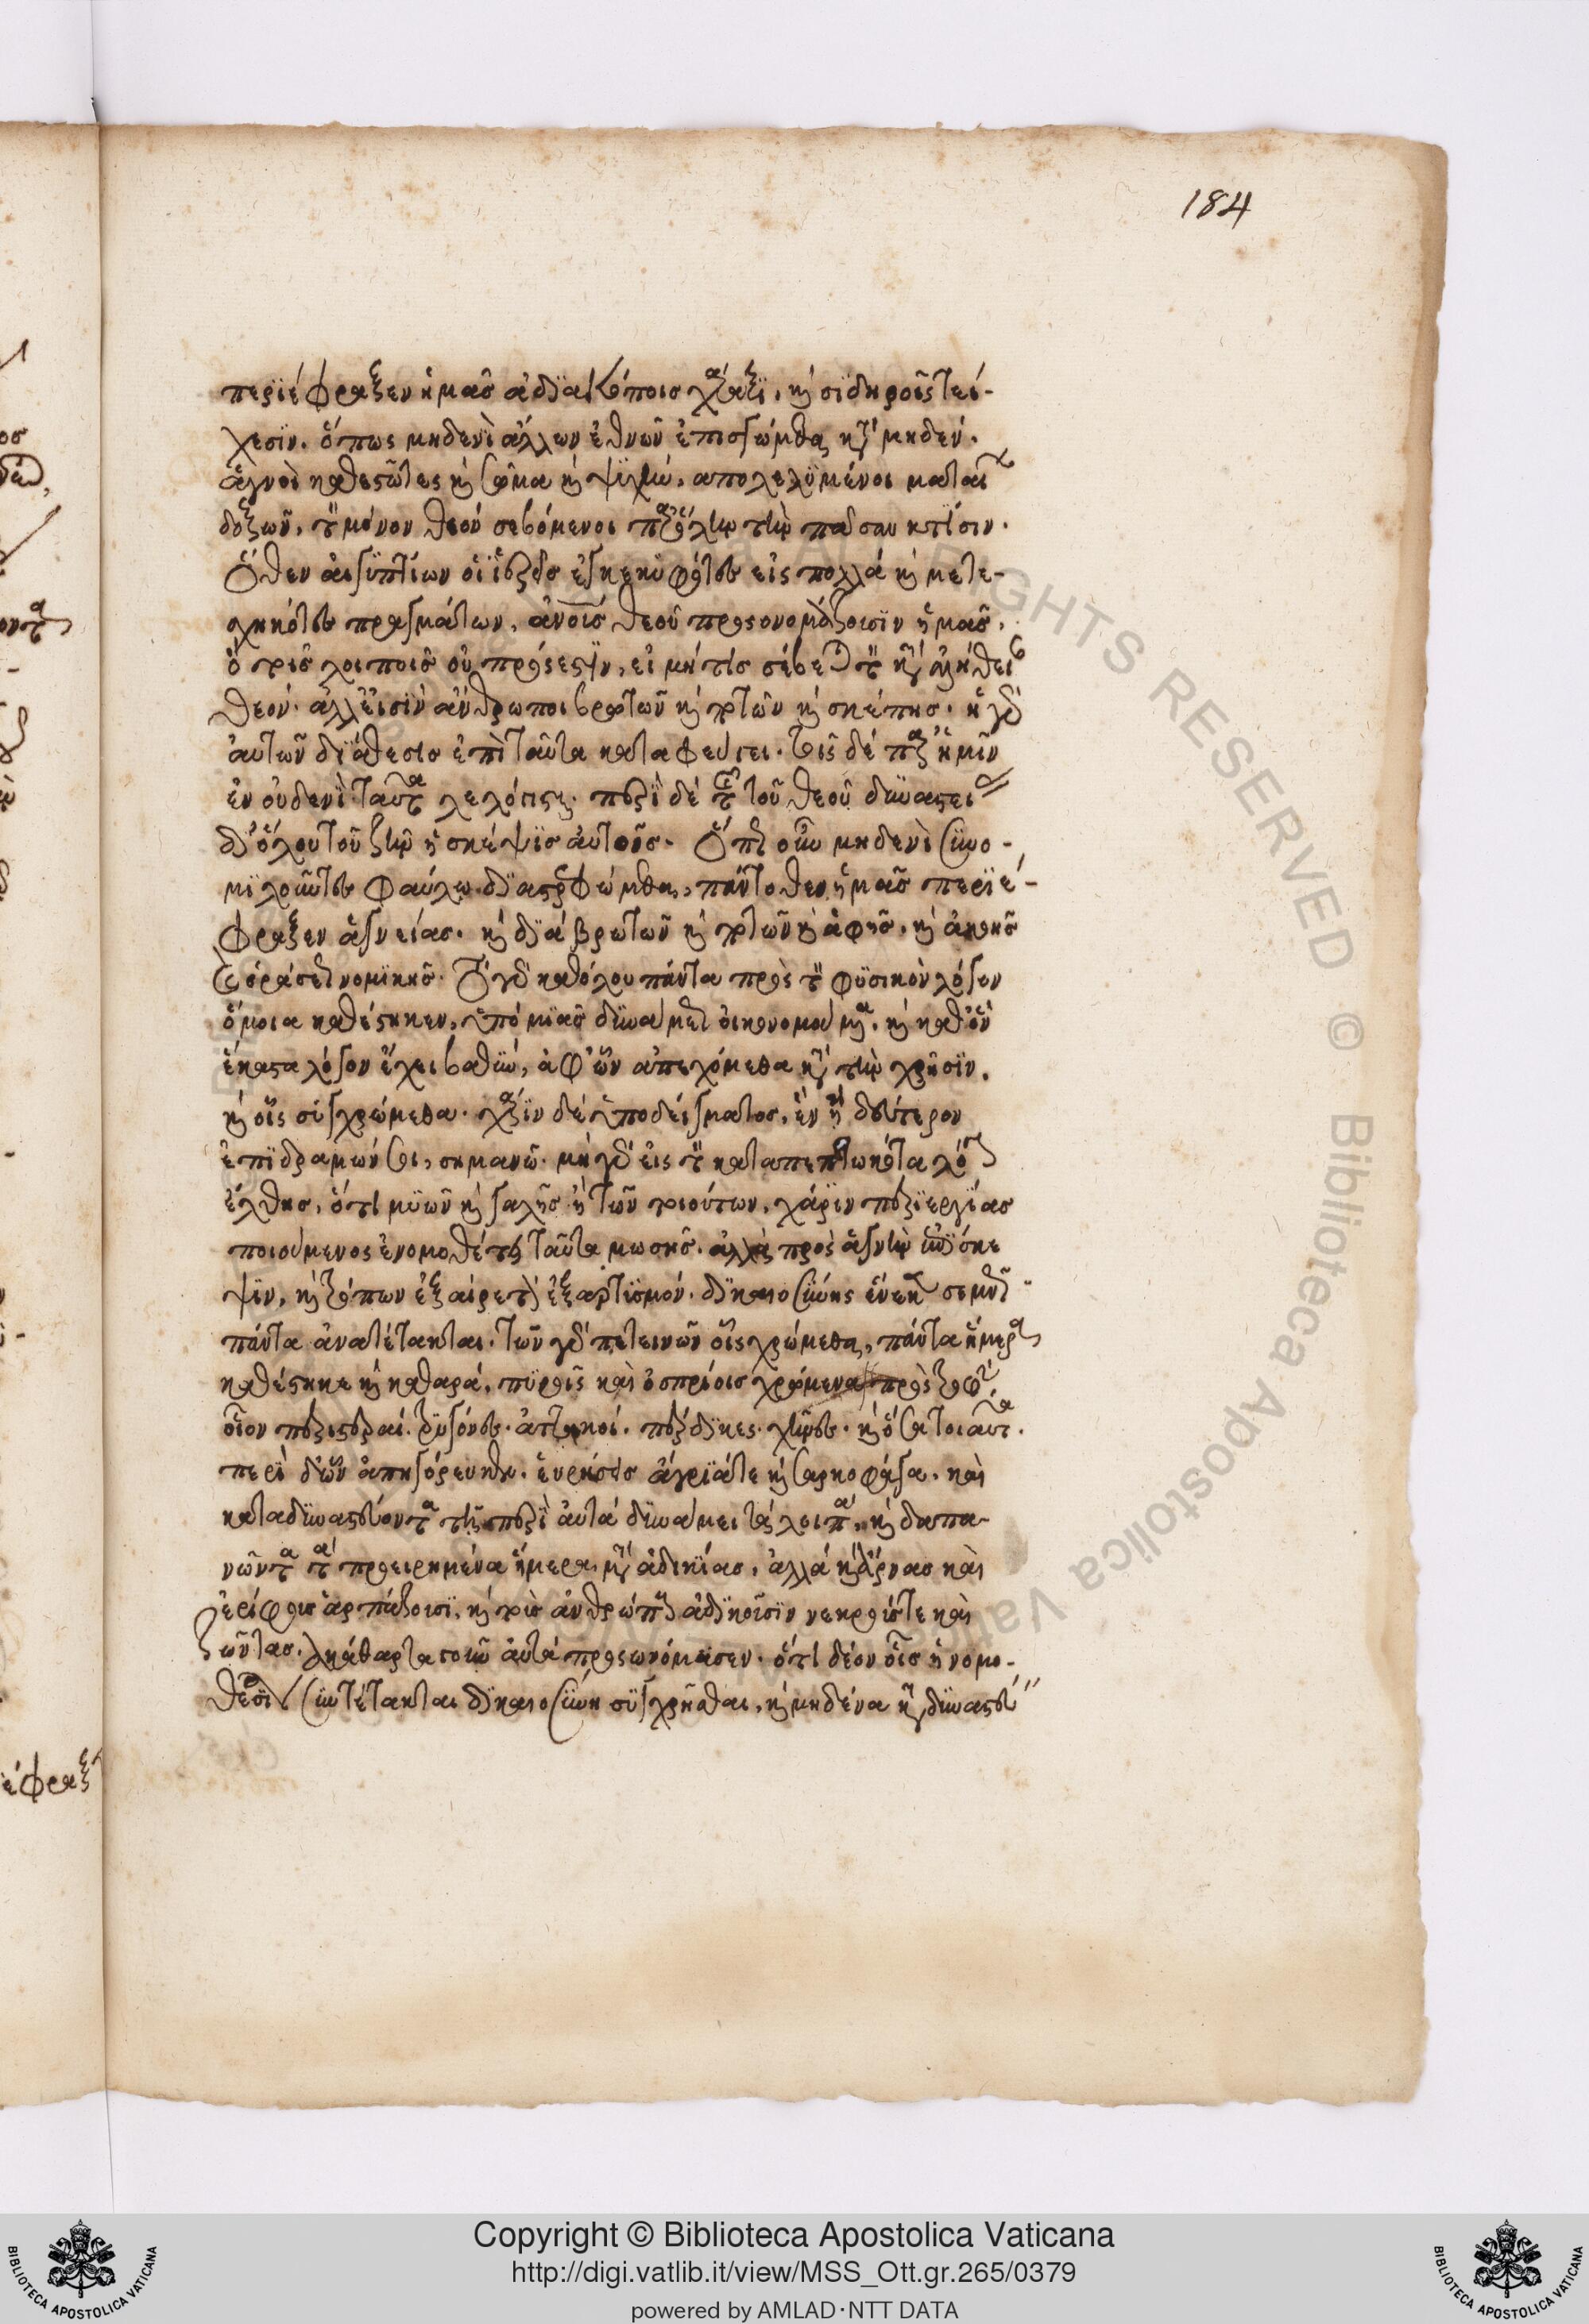 184
περιέφραξεν ἡμᾶς ἀδιακόποις χάραξι, καὶ σιδηροῖς τεί-
χεσιν. ὅπως μηδενὶ ἄλλων ἐθνῶν ἐπισγώμεθα κατὰ μηδέν.
ἁγνοὶ καθεστῶτες καὶ σῶμα καὶ ψυχήν, απολελυμένοι ματαίων
δοξῶν, τὸν μόνον θεόν σεβόμενοι παρόλην τὴν πᾶσαν κτίσιν.
Ὅθεν αἰγυπτίων οἱ ἱερεῖς ἐγκεκυφότες εἰς πολλά καὶ μετε-
χηκότες πραγμάτων, ἀνους θεοῦ προσονομάζουσιν ἡμᾶς,
ὃ τοῖς λοιποῖς οὐ πρόσεστιν, εἰ μή τις σέβεται τὸν κατ' ἀλήθειαν
θεόν. ἀλλ' εἰσὶν ἄνθρωποι βρωτῶν καὶ ποτῶν καὶ σκέπης. ἡ γὰρ
αὐτῶν διάθεσις ἐπὶ ταῦτα καταφεύγει. τοῖς δέ παρ' ἡμῖν
ἐν οὐδενὶ ταῦτα λελόγισται. περὶ δέ τῆς τοῦ θεοῦ δυναστείας
δι' ὅλου τοῦ ζῆν ἡ σκέψις αὐτοῖς. Ὅπως οὖν μηδενὶ συνο-
μιλοῦντες φαύλω διαστροφώμεθα, πάντοθεν ἡμᾶς περιέ-
φραξεν ἁγνείας. καὶ διά βρωτῶν καὶ ποτῶν καὶ ἀφῆς, καὶ ἀκοῆς
καὶ ὁράσεως νομικῆς. Τὸ γὰρ καθόλου πάντα πρὸς τὸν φυσικὸν λόγον
ὅμοια καθέστηκεν, ὑπό μιᾶς δυνάμεως οἰκονομούμενα, καὶ καθ' ἓν
ἕκαστα λόγον ἔχει βαθύν, ἀφ' ὧν ἀπεχόμεθα κατὰ τὴν χρῆσιν,
καὶ οἷς συγχρώμεθα. χάριν δέ ὑποδείγματος, ἓν ἢ δεύτερον
ἐπιδραμών σοι, σημανῶ. μή γὰρ εἰς τὸν καταπεπτωκότα λόγον
ἔλθης, ὅτι μυῶν καὶ γαλῆς ἢ τῶν τοιούτων, χάριν περιεργίας
ποιούμενος ἐνομοθέτει ταῦτα μωσῆς. ἀλλὰ πρὸς ἁγνὴν ἐπίσκε
ψιν, καὶ τρόπων ἐξαρτισμόν. δικαιοσύνης ἕνεκεν σεμνῶς
πάντα ἀνατέτακται. τῶν γὰρ πετεινῶν οἷς χρώμεθα, πάντα ἥμερα
καθέστηκε καὶ καθαρά, πυροῖς καὶ ὀσπρίοις χρώμενα πρὸς τροφήν.
οἷον περιστεραί. τρυγόνες. ἀττακοί. πέρδικες. χῆνες. καὶ ὅσα τοιαῦτα.
περὶ δ' ὧν ἀπηγόρευται, εὑρήσεις ἄγριά τε καὶ σαρκοφάγα. καὶ
καταδυναστεύοντα τῇ περὶ αὐτά δυνάμει τά λοιπά, καὶ δαπα-
νῶντα τὰ προειρημένα ἥμερα μετὰ ἀδικίας, ἀλλά καὶ ἄρνας καὶ
ἐρίφους ἁρπάζουσι, καὶ τοὺς ἀνθρώπους ἀδικοῦσιν νεκρούς τε καὶ
ζῶντας. ἀκάθαρτα γοῦν αὐτά προσωνόμασεν. ὅτι δέον οἷς ἡ νομο-
θεσία συντέτακται δικαιοσύνη συγχρῆσθαι, καὶ μηδένα καταδυναστεύ
Copyright © Biblioteca Apostolica Vaticana
http://digi.vatlib.it/view/MSS_Ott.gr.265/0379
powered by AMLAD·NTT DATA